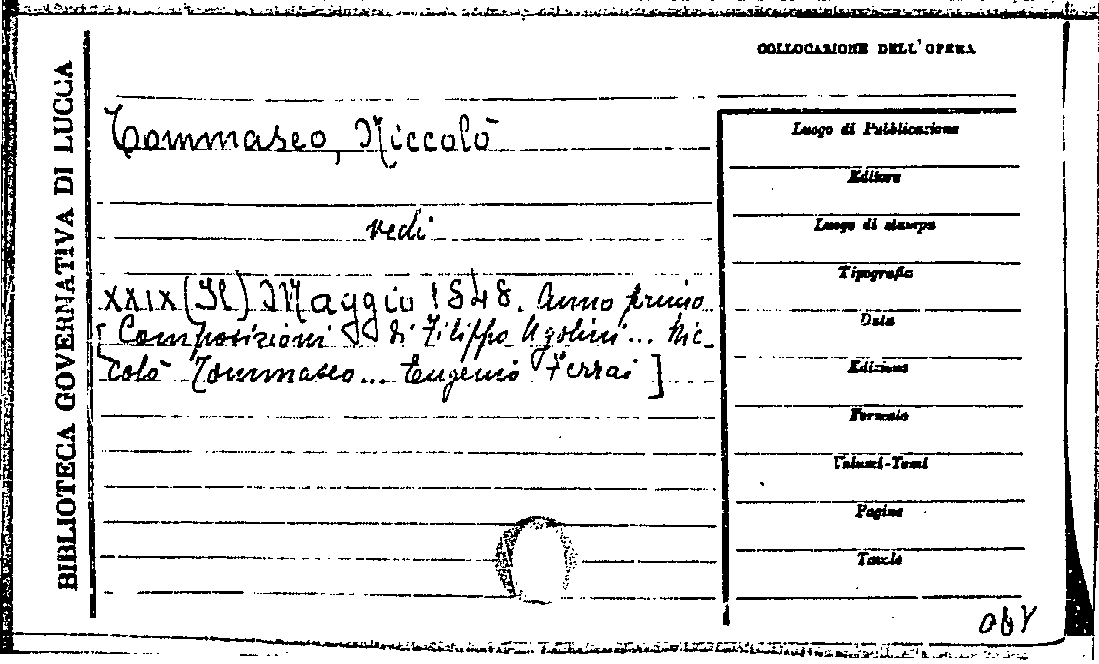 BIBLIOTECA GOVERNATIVA DI LUCCA
COLLOCAZIONE DELL'OPERA
Tommaseo, Niccolò
vedi
XXIX (Il) Maggio 1848. Anno primo
[Composizioni di Filippo Ugolini... Nic-
colò Tommaseo... Eugenio Ferrai]
Luogo di Pubblicazione
Editore
Luogo di stampa
Tipografia
Data
Edizione
Formato
Volumi-Tomi
Pagine
Tavole